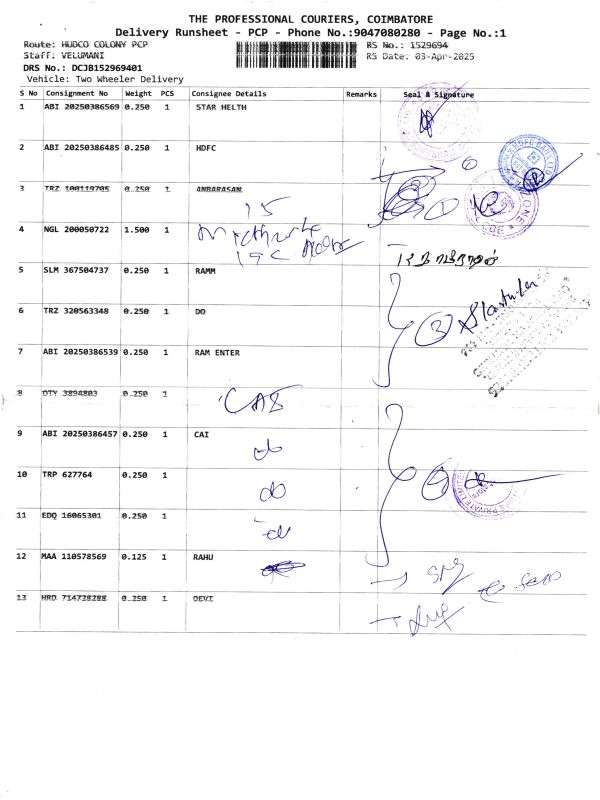 THE PROFESSIONAL COURIERS, COIMBATORE
Delivery Runsheet - PCP - Phone No.:9047080280 - Page No.:1
Route: HUDCO COLONY PCP RS No.: 1529694
Staff: VELUMANI RS Date: 03-Apr-2025
DRS No.: DCJB152969401
Vehicle: Two Wheeler Delivery
S No Consignment No Weight PCS Consignee Details Remarks Seal & Signature
1 ABI 20250386569 0.250 1 STAR HELTH
2 ABI 20250386485 0.250 1 HDFC
3 TRZ 100119705 0.250 1 ANBARASAN
15
4 NGL 200050722 1.500 1
5 SLM 367504737 0.250 1 RAMM
6 TRZ 320563348 0.250 1 DO
3
7 ABI 20250386539 0.250 1 RAM ENTER
8 OTY 3894803 0.250 1
9 ABI 20250386457 0.250 1 CAI
do
10 TRP 627764 0.250 1
do
11 EDQ 16065301 0.250 1
do
12 MAA 110578569 0.125 1 RAHU
13 HRD 714728288 0.250 1 DEVI